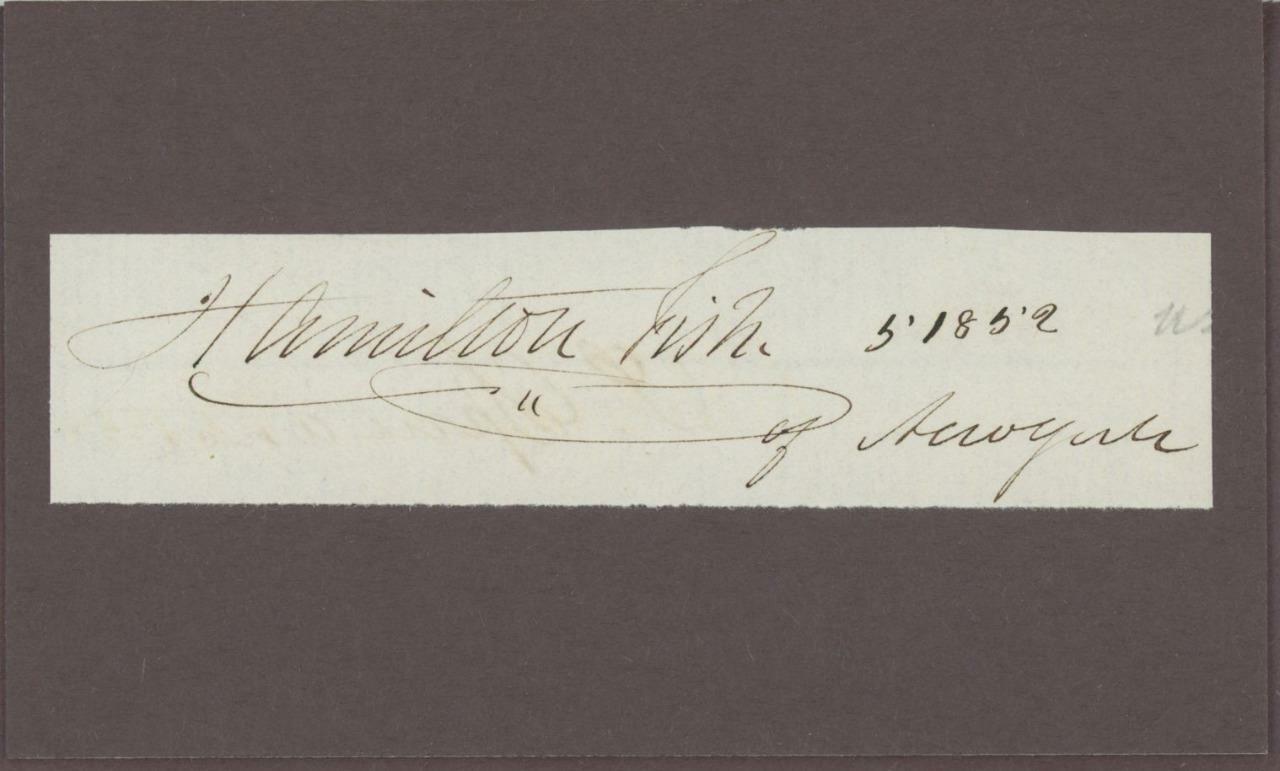 Hamilton Fish. 5 1852
" of New York